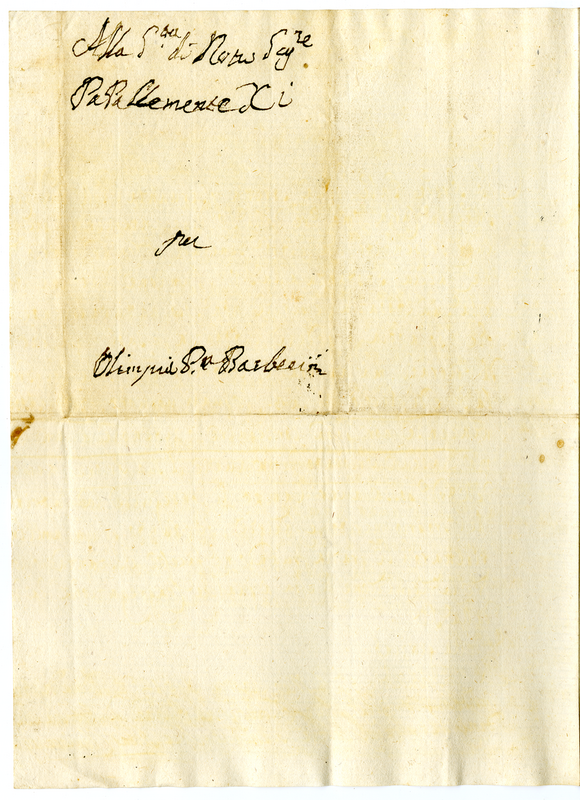 Alla S.ta di Nostro Sig.re
PaPa Clemente Xi
per
Olimpia P.a Barberini